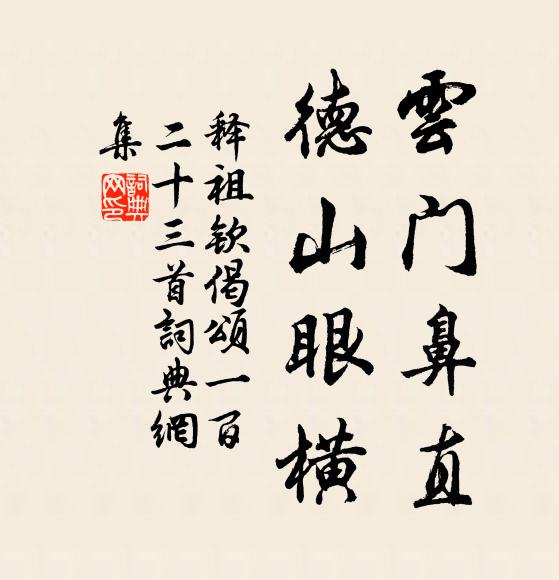 雲门鼻直
德山眼橫
释祖欽偈頌一百
二十三首詞典網
集
詞典
网印